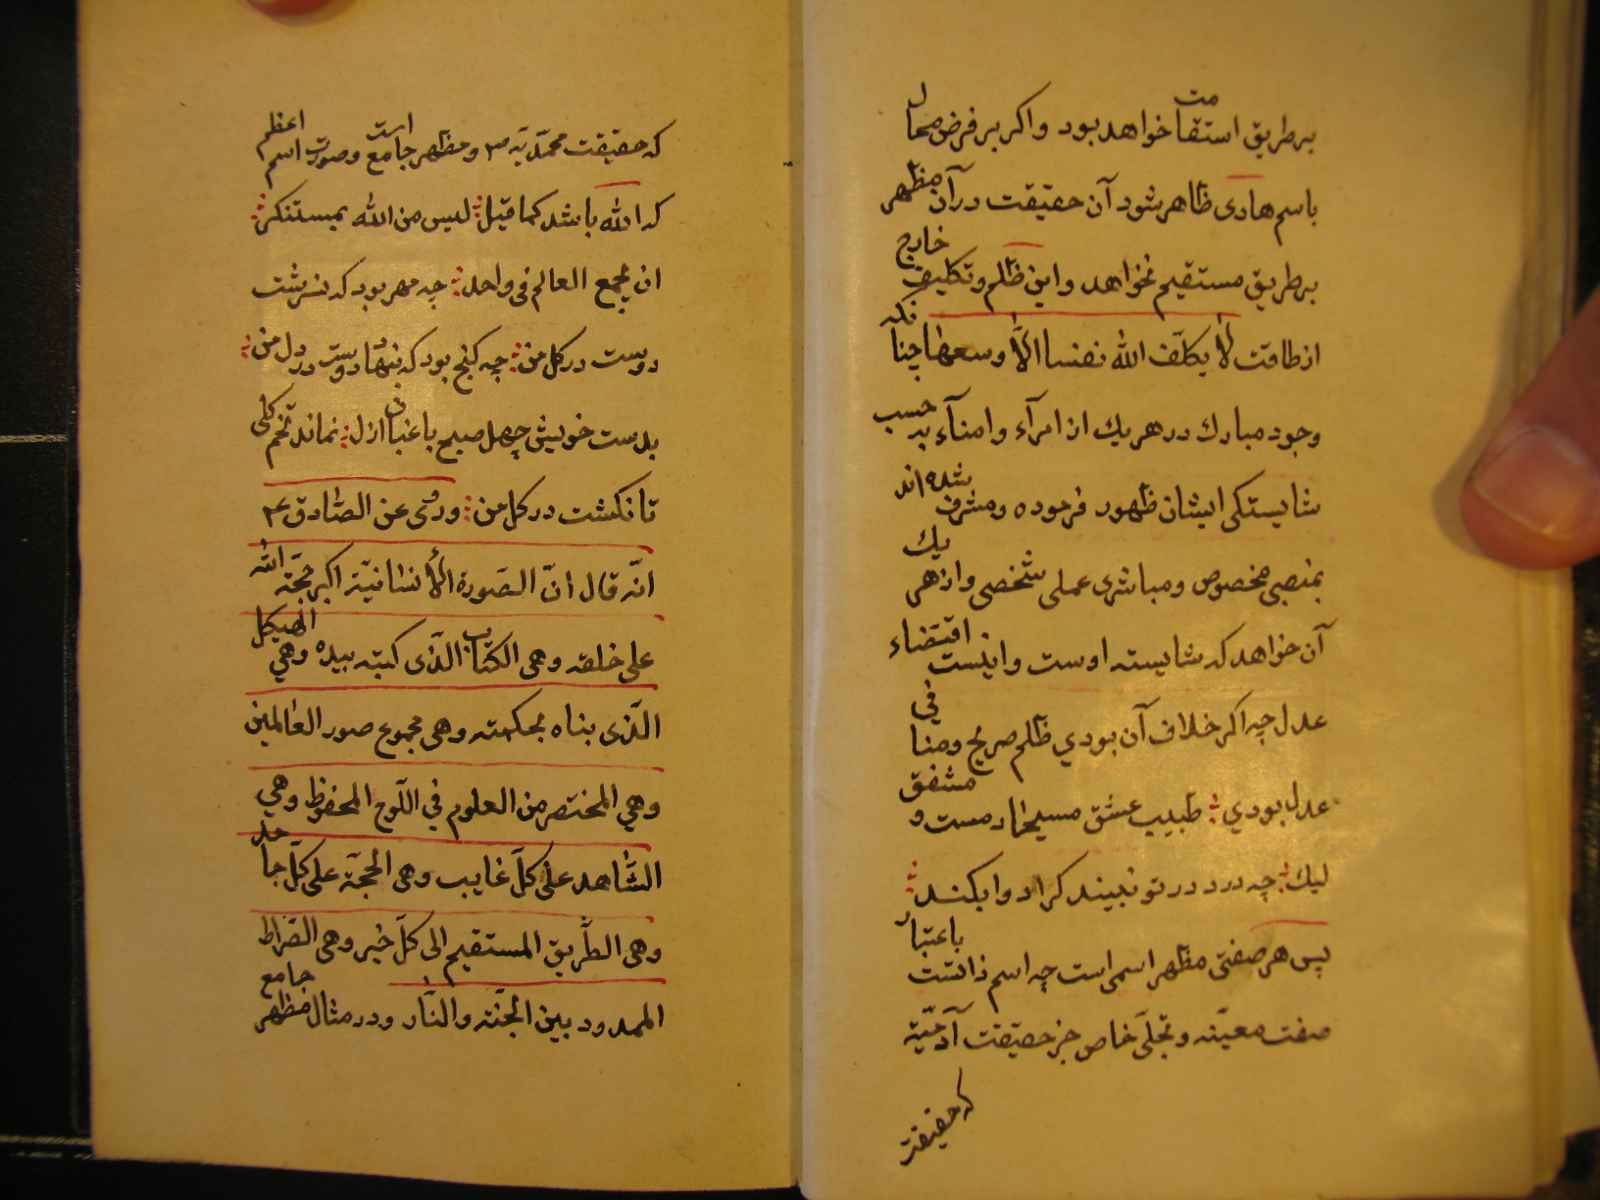 برطریق استقامت خواهد بود و اکر بر فرض محال
باسم هادی ظاهر شود آن حقیقت در آن مظهر
برطریق مستقیم نخواهد و این ظلم و تکلیف خارج
از طاقت لا یکلّف الله نفسا الّا وسعها چنانکه
وجود مبارك در هریك از امرآء و امنآء بر حسب
شایستکی ایشان ظهور فرموده و مشرف شده اند
بمنصبی مخصوص و مباشری عملی شخصی و از هر یك
آن خواهد که شایسته اوست و اینست اقتضاء
عدل چه اکر خلاف آن بودي ظلم صریح و منافي
عدل بودي طبیب عشق مسیحا دمست و مشفق
لیك چه درد در تو نبیند کرا دوا بکند
پس هر صفتی مظهر اسمی است چه اسم ذاتست باعتبار
صفت معیّنه و تجلّی خاص جز حقیقت آدمیّة
که حقیقت
که حقیقت محمّدیّه ص و مظهر جامع است و صورت اسم اعظم
که الله باشد کما قیل لیس من الله بمستنکر
ان یجمع العالم فی واحد چه مهر بود که بسرشت
دوست در کل من چه کنج بود که بنهاد دوست در دل من
بدست خویش چهل صبح باغبان ازل نماند تخم کلی
تا نکشت در کل من و رُوی عن الصّادق ع
انّه قال انّ الصّورة الأنسانیّة اکبر حجّة الله
علی خلقه وهی الکتاب الذّی کتبه بیده وهي الهیکل
الذّی بناه بحکمته وهی مجموع صور العالمین
وهي المختصر من العلوم في اللّوح المحفوظ وهي
الشّاهد علی کلّ غایب وهی الحجّة علی کلّ جاحد
وهی الطّریق المستقیم الی کلّ خیر وهی الصّراط
الممدود بین الجنّة والنّار ودر مثال مظهر جامع